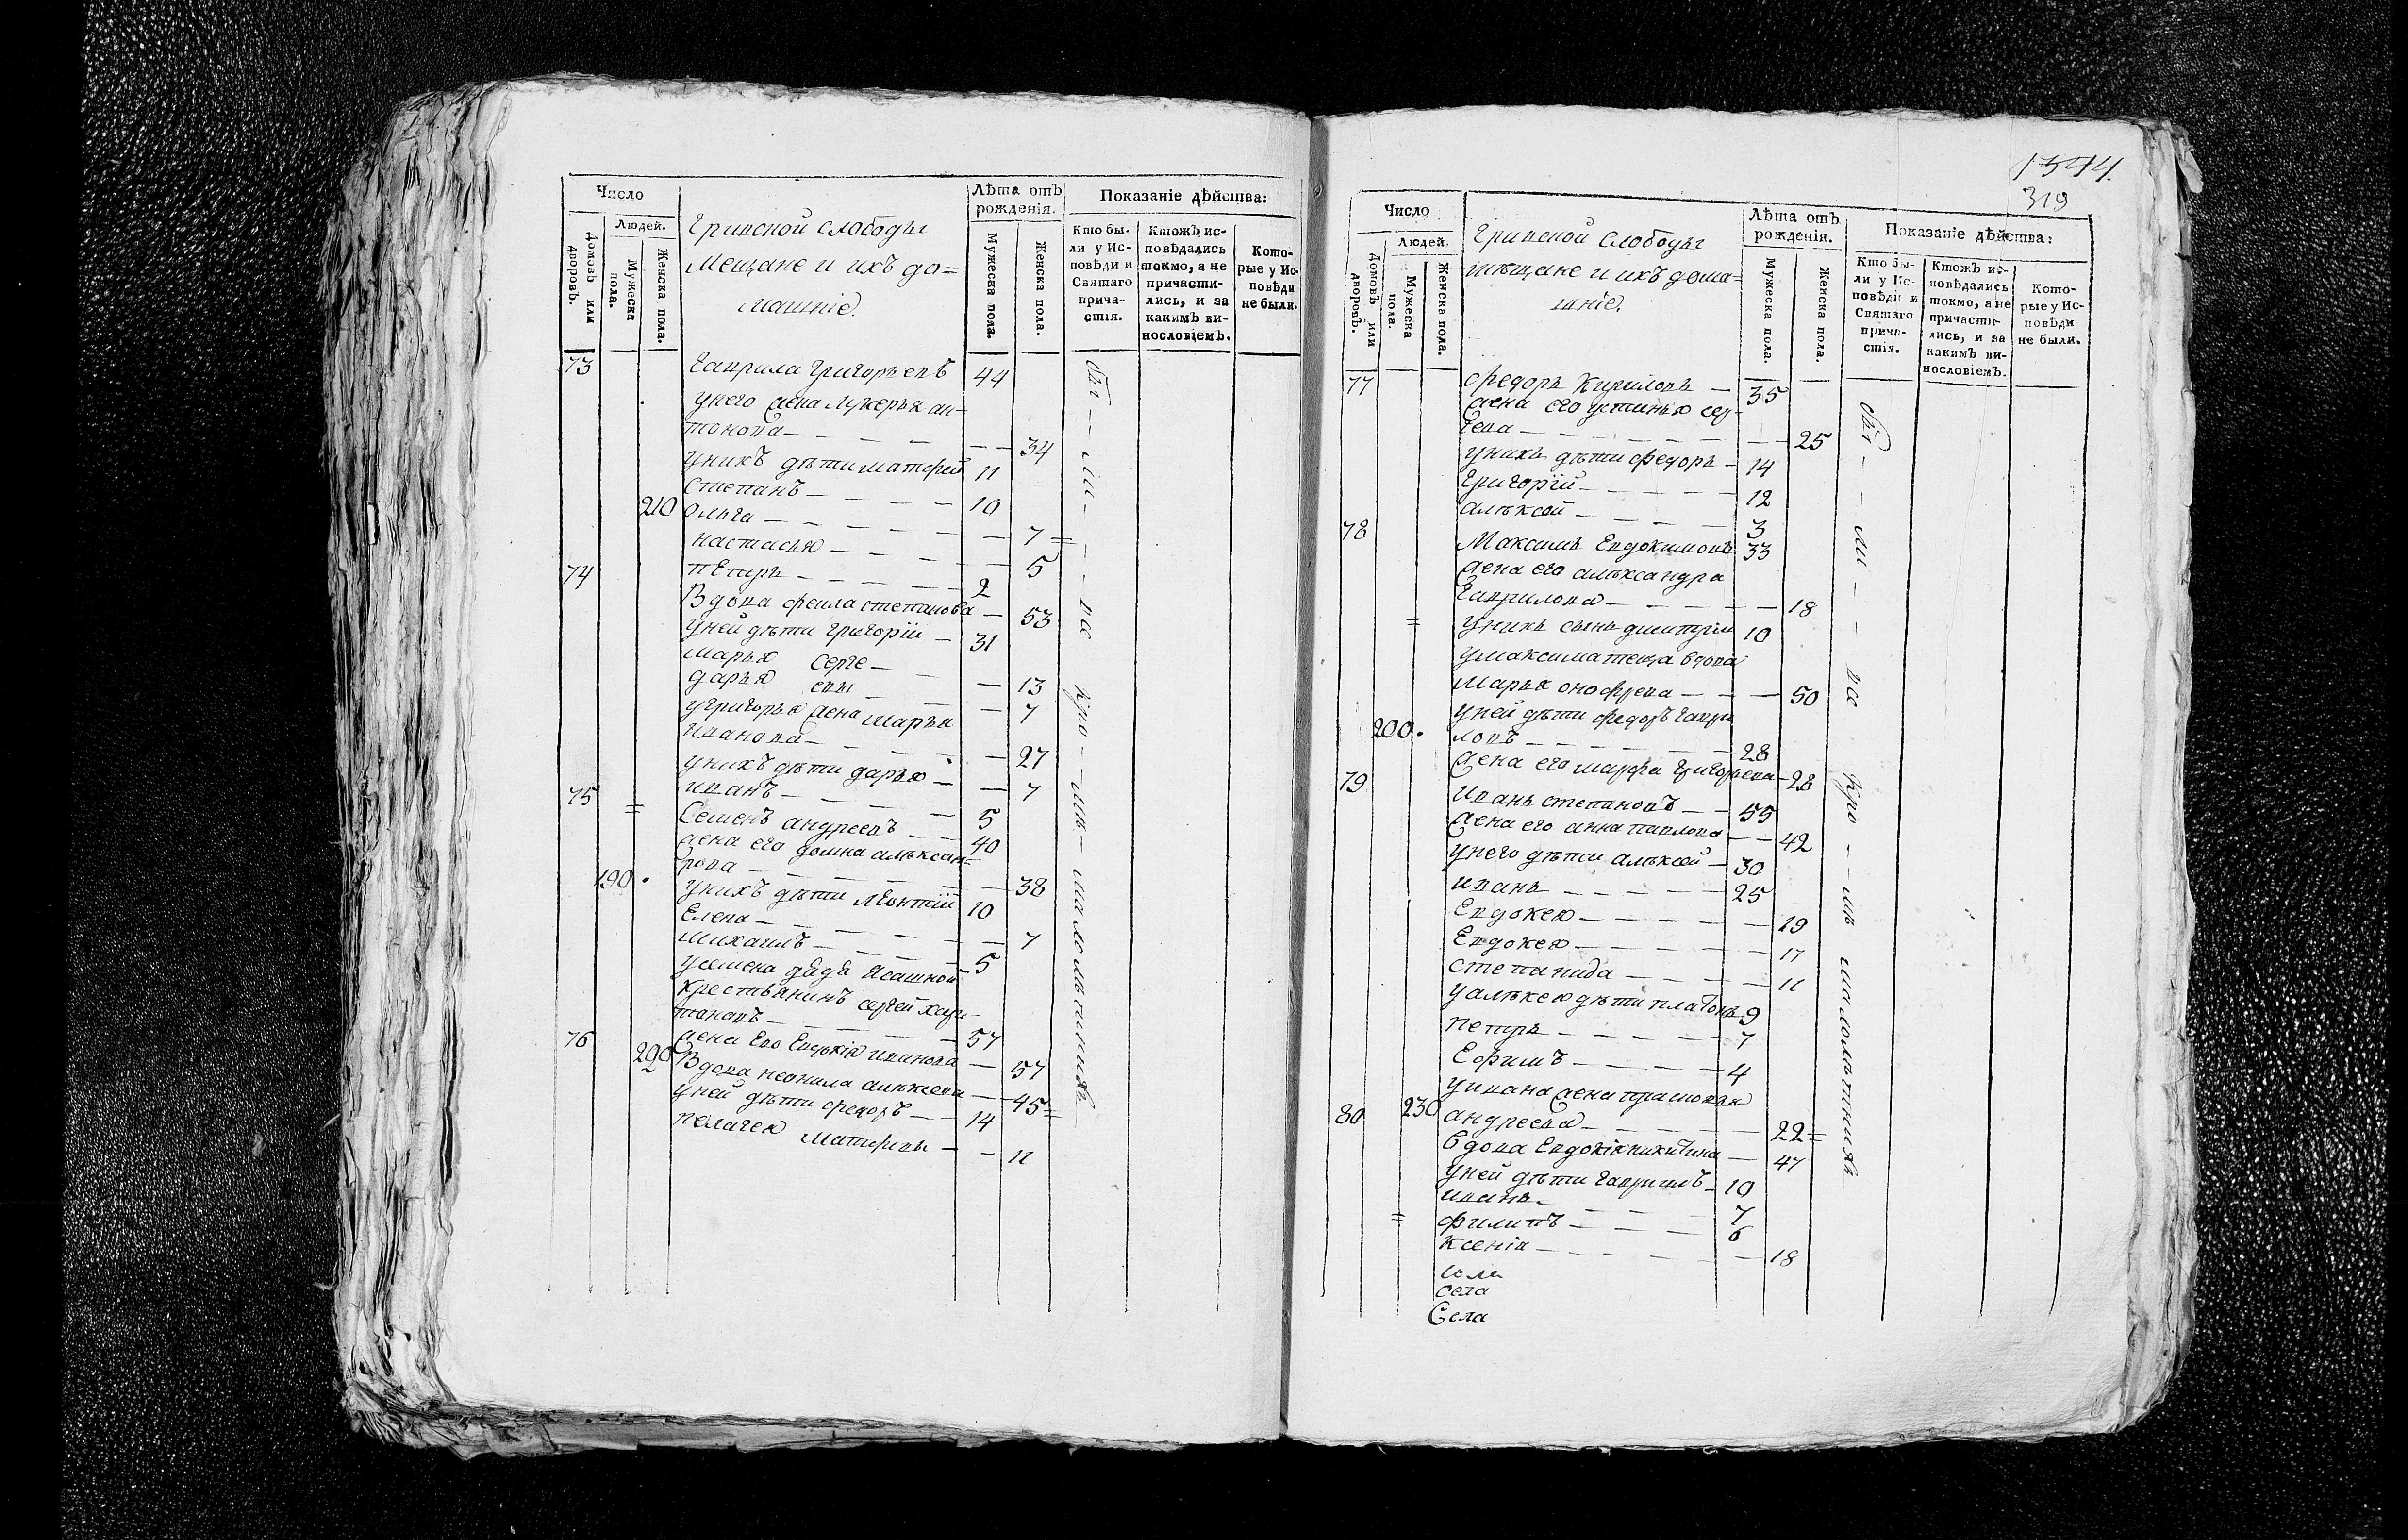 Число
Людей.
Домовъ или дворовъ.
Мужеска пола.
Женска пола.
Гривской слободы
мещане и ихъ до=
машніе.
Лѣта отъ рожденія.
Мужеска пола.
Женска пола.
Показаніе дѣйства:
Кто бы-
ли у Ис-
повѣди и
Святаго
прича-
стія.
Ктожъ ис-
повѣдались
токмо, а не
причасти-
лись, и за
какимъ ви-
нословіемъ.
Кото-
рые у Ис-
повѣди
не были.
73 Гаврила григорьевъ 44
унего жена лукерья ан-
тонова — 34
унихъ дѣти матфей 11
степанъ — 10
210 Ольга — 7 =
настасья — 5
пЕтръ — 2
74 Вдова феила степанова — 53
уней дѣти григорій — 31
марья серге — 13
дарья евы — 7
угригорья жена марья
иванова — 27
унихъ дѣти дарья — 7
иванъ — 5
75 = Семенъ андреевъ — 40
жена его домна алѣксан=
рова — 38
190. унихъ дѣти лЕонтій 10
Елена — 7
михаилъ — 5
усемена дядя Ясашной
крестьянинъ сергей хари-
тоновъ — 57
жена Ево Евдокія иванова — 57
76 220 Вдова неонила алѣксеева — 45 =
уней дѣти федоръ — 14
пелагея матфевы — 11
бы — ли — все кро — мѣ — малолѣтнихъ
1544.
319
Число
Людей.
Домовъ или дворовъ.
Мужеска пола.
Женска пола.
Гривской слободы
мѣщане и ихъ дома=
шніе.
Лѣта отъ рожденія.
Мужеска пола.
Женска пола.
Показаніе дѣйства:
Кто бы-
ли у Ис-
повѣди и
Святаго
прича-
стія.
Ктожъ ис-
повѣдались
токмо, а не
причасти-
лись, и за
какимъ ви-
нословіемъ.
Кото-
рые у Ис-
повѣди
не были.
77 федоръ Кириловъ — 35
жена его устинья сер-
геева — 25
унихъ дѣти федоръ — 14
григорій — 12
алѣксѣй — 3
78 Максимъ Евдокимовъ 33
жена его алѣксандра
Гаврилова — 18
= унихъ сынъ дмитрій 10
умаксима теща вдова
Марья онофрева — 50
уней дѣти федоръ гаври
200. ловъ — 28
жена его марфа григорьева — 28
79 Иванъ степановъ — 55
жена его анна павлова — 42
унего дѣти алѣксѣй — 30
иванъ — 25
Евдокея — 19
Евдокея — 17
степанида — 11
уалѣксея дѣти платонъ 9
петръ — 7
Ефимъ — 4
уивана жена прасковья
230 андреева — 22 =
80 вдова Евдокія никитина — 47
уней дѣти гавриилъ — 10
иванъ — 7
= филипъ — 6
ксенія — 18
села
Села
бы — ли — все кро — мѣ малолѣтнихъ